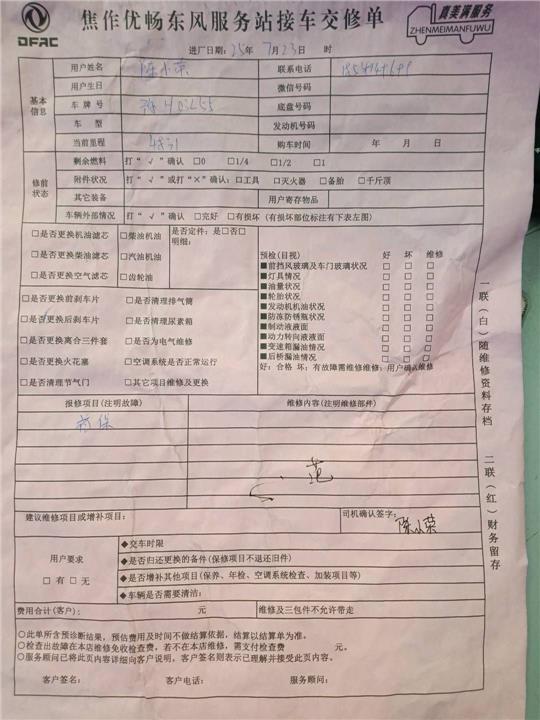 DFAC
焦作优畅东风服务站接车交修单
真美满服务
ZHENMEIMANFUWU
进厂日期:25年 7月23日 时
基本信息
用户姓名 陈小荣 联系电话
用户生日 微信号码
车牌号 底盘号码
车型 发动机号码
当前里程 购车时间 年 月 日
修前状态
剩余燃料 打“√”确认 □0 □1/4 □1/2 □1
附件状况 打“√”或打“×”确认:□工具 □灭火器 □备胎 □千斤顶
其它装备 用户寄存物品
车辆外部情况 打“√”确认 □完好 □有损坏(有损坏部位标注有下表左图)
□是否更换机油滤芯 □柴油机油 是否定件:是□否□
明细:
□是否更换柴油滤芯 □汽油机油
□是否更换空气滤芯 □齿轮油
□是否更换前刹车片 □是否清理排气筒
□是否更换后刹车片 □是否清理尿素箱
□是否更换离合三件套 □是否为电气维修
□是否更换火花塞 □空调系统是否正常运行
□是否清理节气门 □其它项目维修及更换
预检(目视) 好 坏 维修
■前挡风玻璃及车门玻璃状况 □ □ □
■灯具情况 □ □ □
■油量状况 □ □ □
■轮胎状况 □ □ □
■发动机机油状况 □ □ □
■防冻防锈瓶状况 □ □ □
■制动液液面 □ □ □
■动力转向液液面 □ □ □
■变速箱漏油情况 □ □ □
■后桥漏油情况 □ □ □
好:合格 坏:有故障需维修维修:用户确认维修
报修项目(注明故障) 维修内容(注明维修部件)
首保
建议维修项目或增补项目: 司机确认签字:
陈小荣
用户要求
□有 □无
◆交车时限
◆是否归还更换的备件(保修项目不退还旧件)
◆是否增补其他项目(保养、年检、空调系统检查、加装项目等)
◆车辆是否需要清洁:
费用合计(客户): 元 维修及三包件不允许带走
○此单所含预诊断结果,预估费用及时间不做结算依据,结算以结算单为准。
○检查出故障在本店维修免收检查费,若不在本店维修,需支付检查费 元。
○服务顾问已将此页内容详细向客户说明,客户签名则表示已理解并接受此页内容。
客户签名: 客户电话: 服务顾问:
一联(白)随维修资料存档
二联(红)财务留存